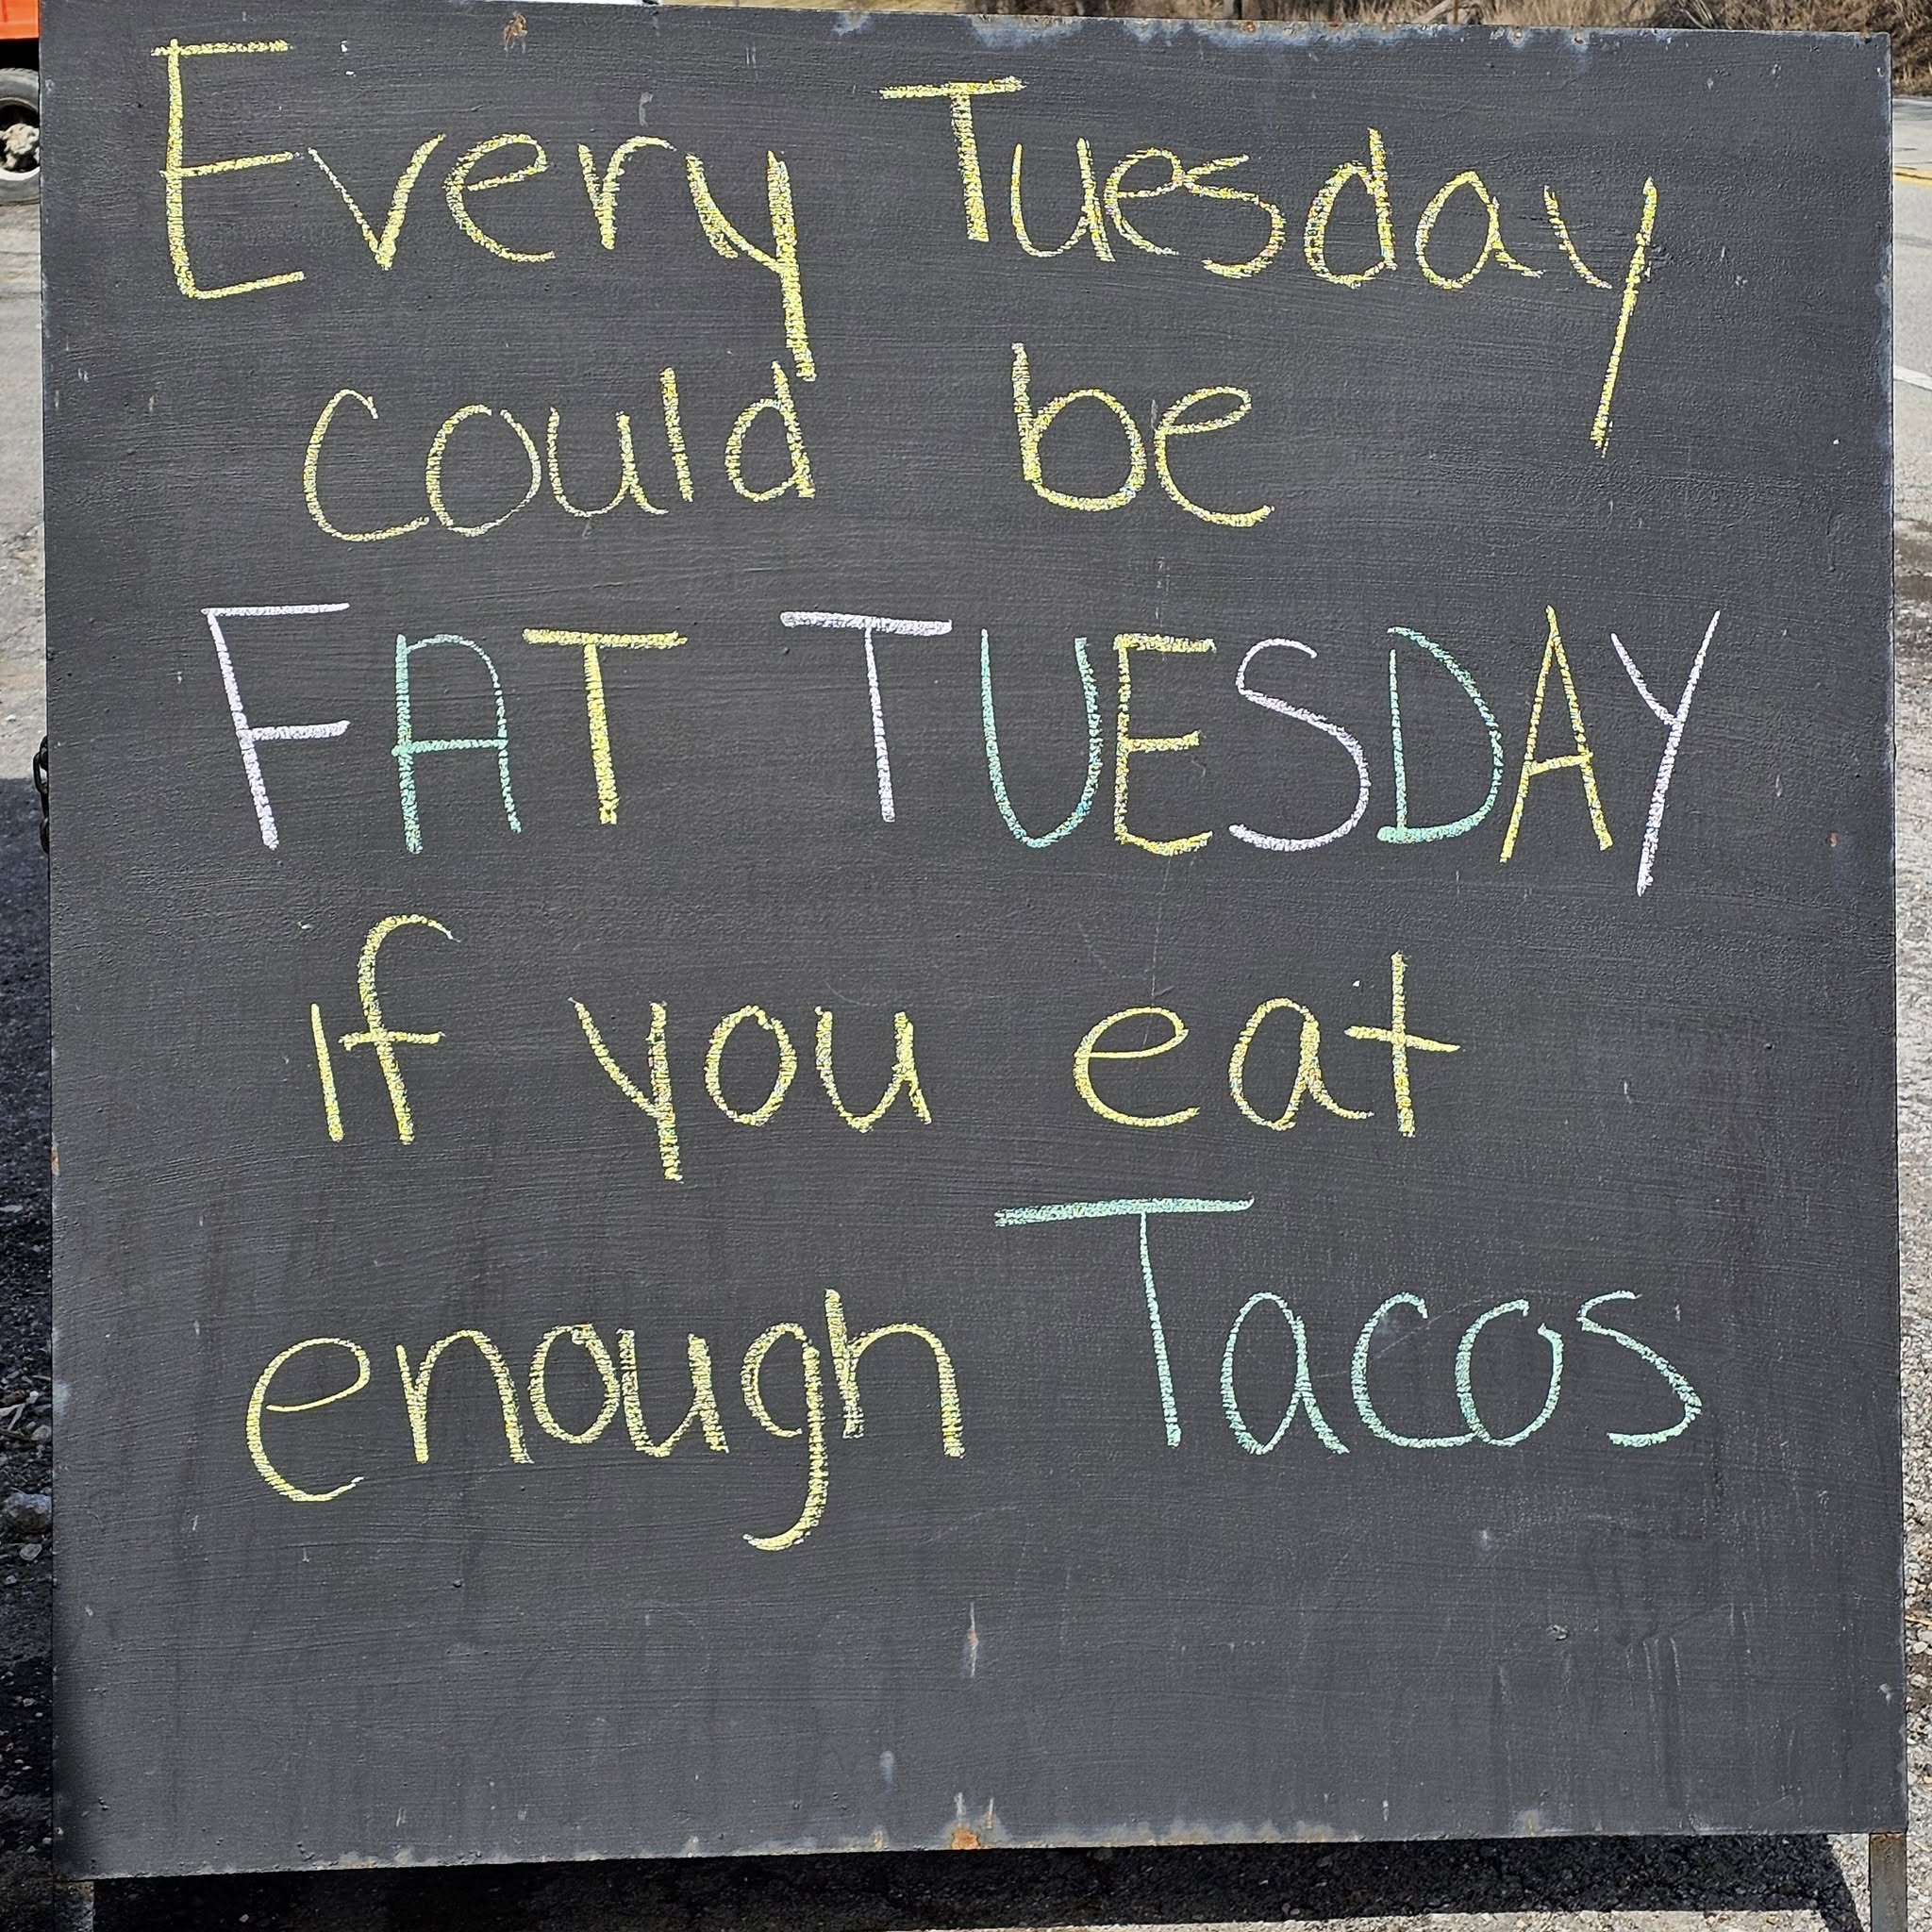 Every Tuesday
could be
FAT TUESDAY
if you eat
enough Tacos